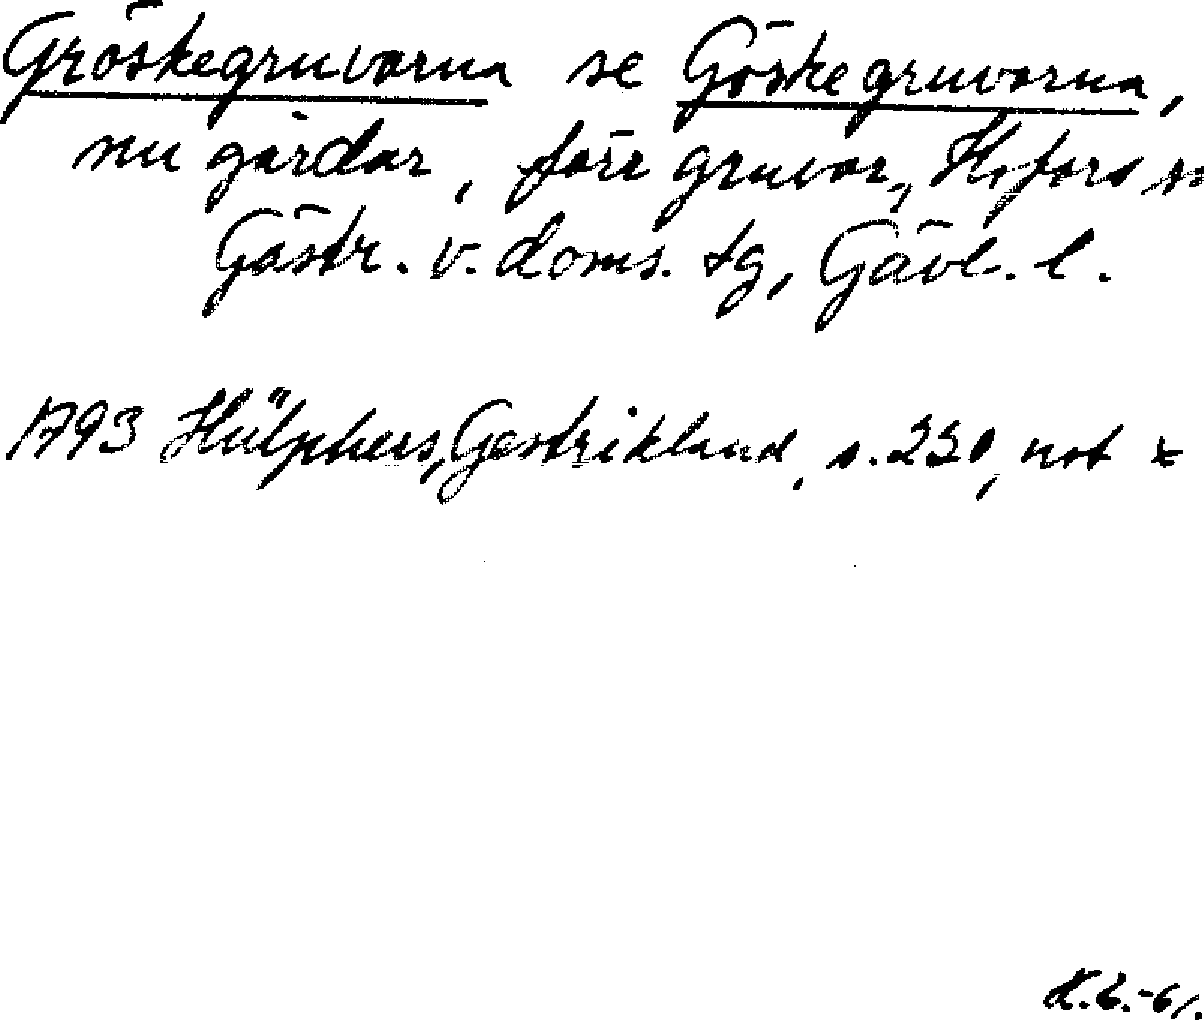 Gröskegruvorna se Göskegruvorna,
nu gårdar, förr gruvor, Hofors sn
Gästr. v. doms. tg, Gävl. l.
1793 Hülphers, Gestrikland, s. 230, not x